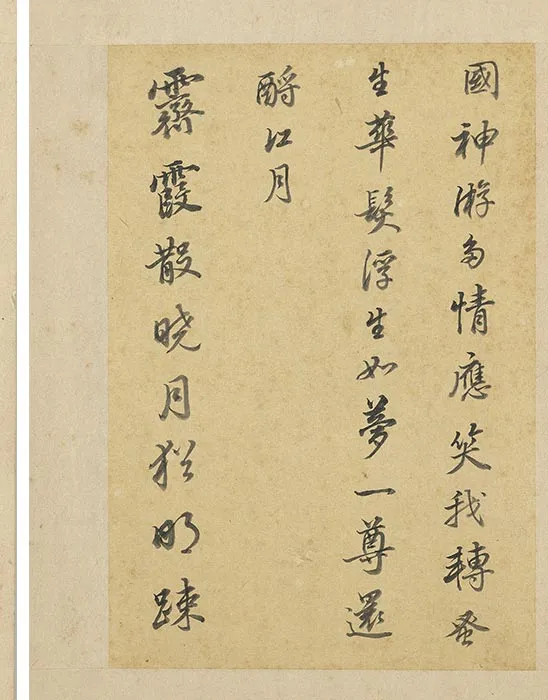 國神游多情應笑我轉蚤
生華髮浮生如夢一尊還
酹江月
霽霞散曉月猶明踈